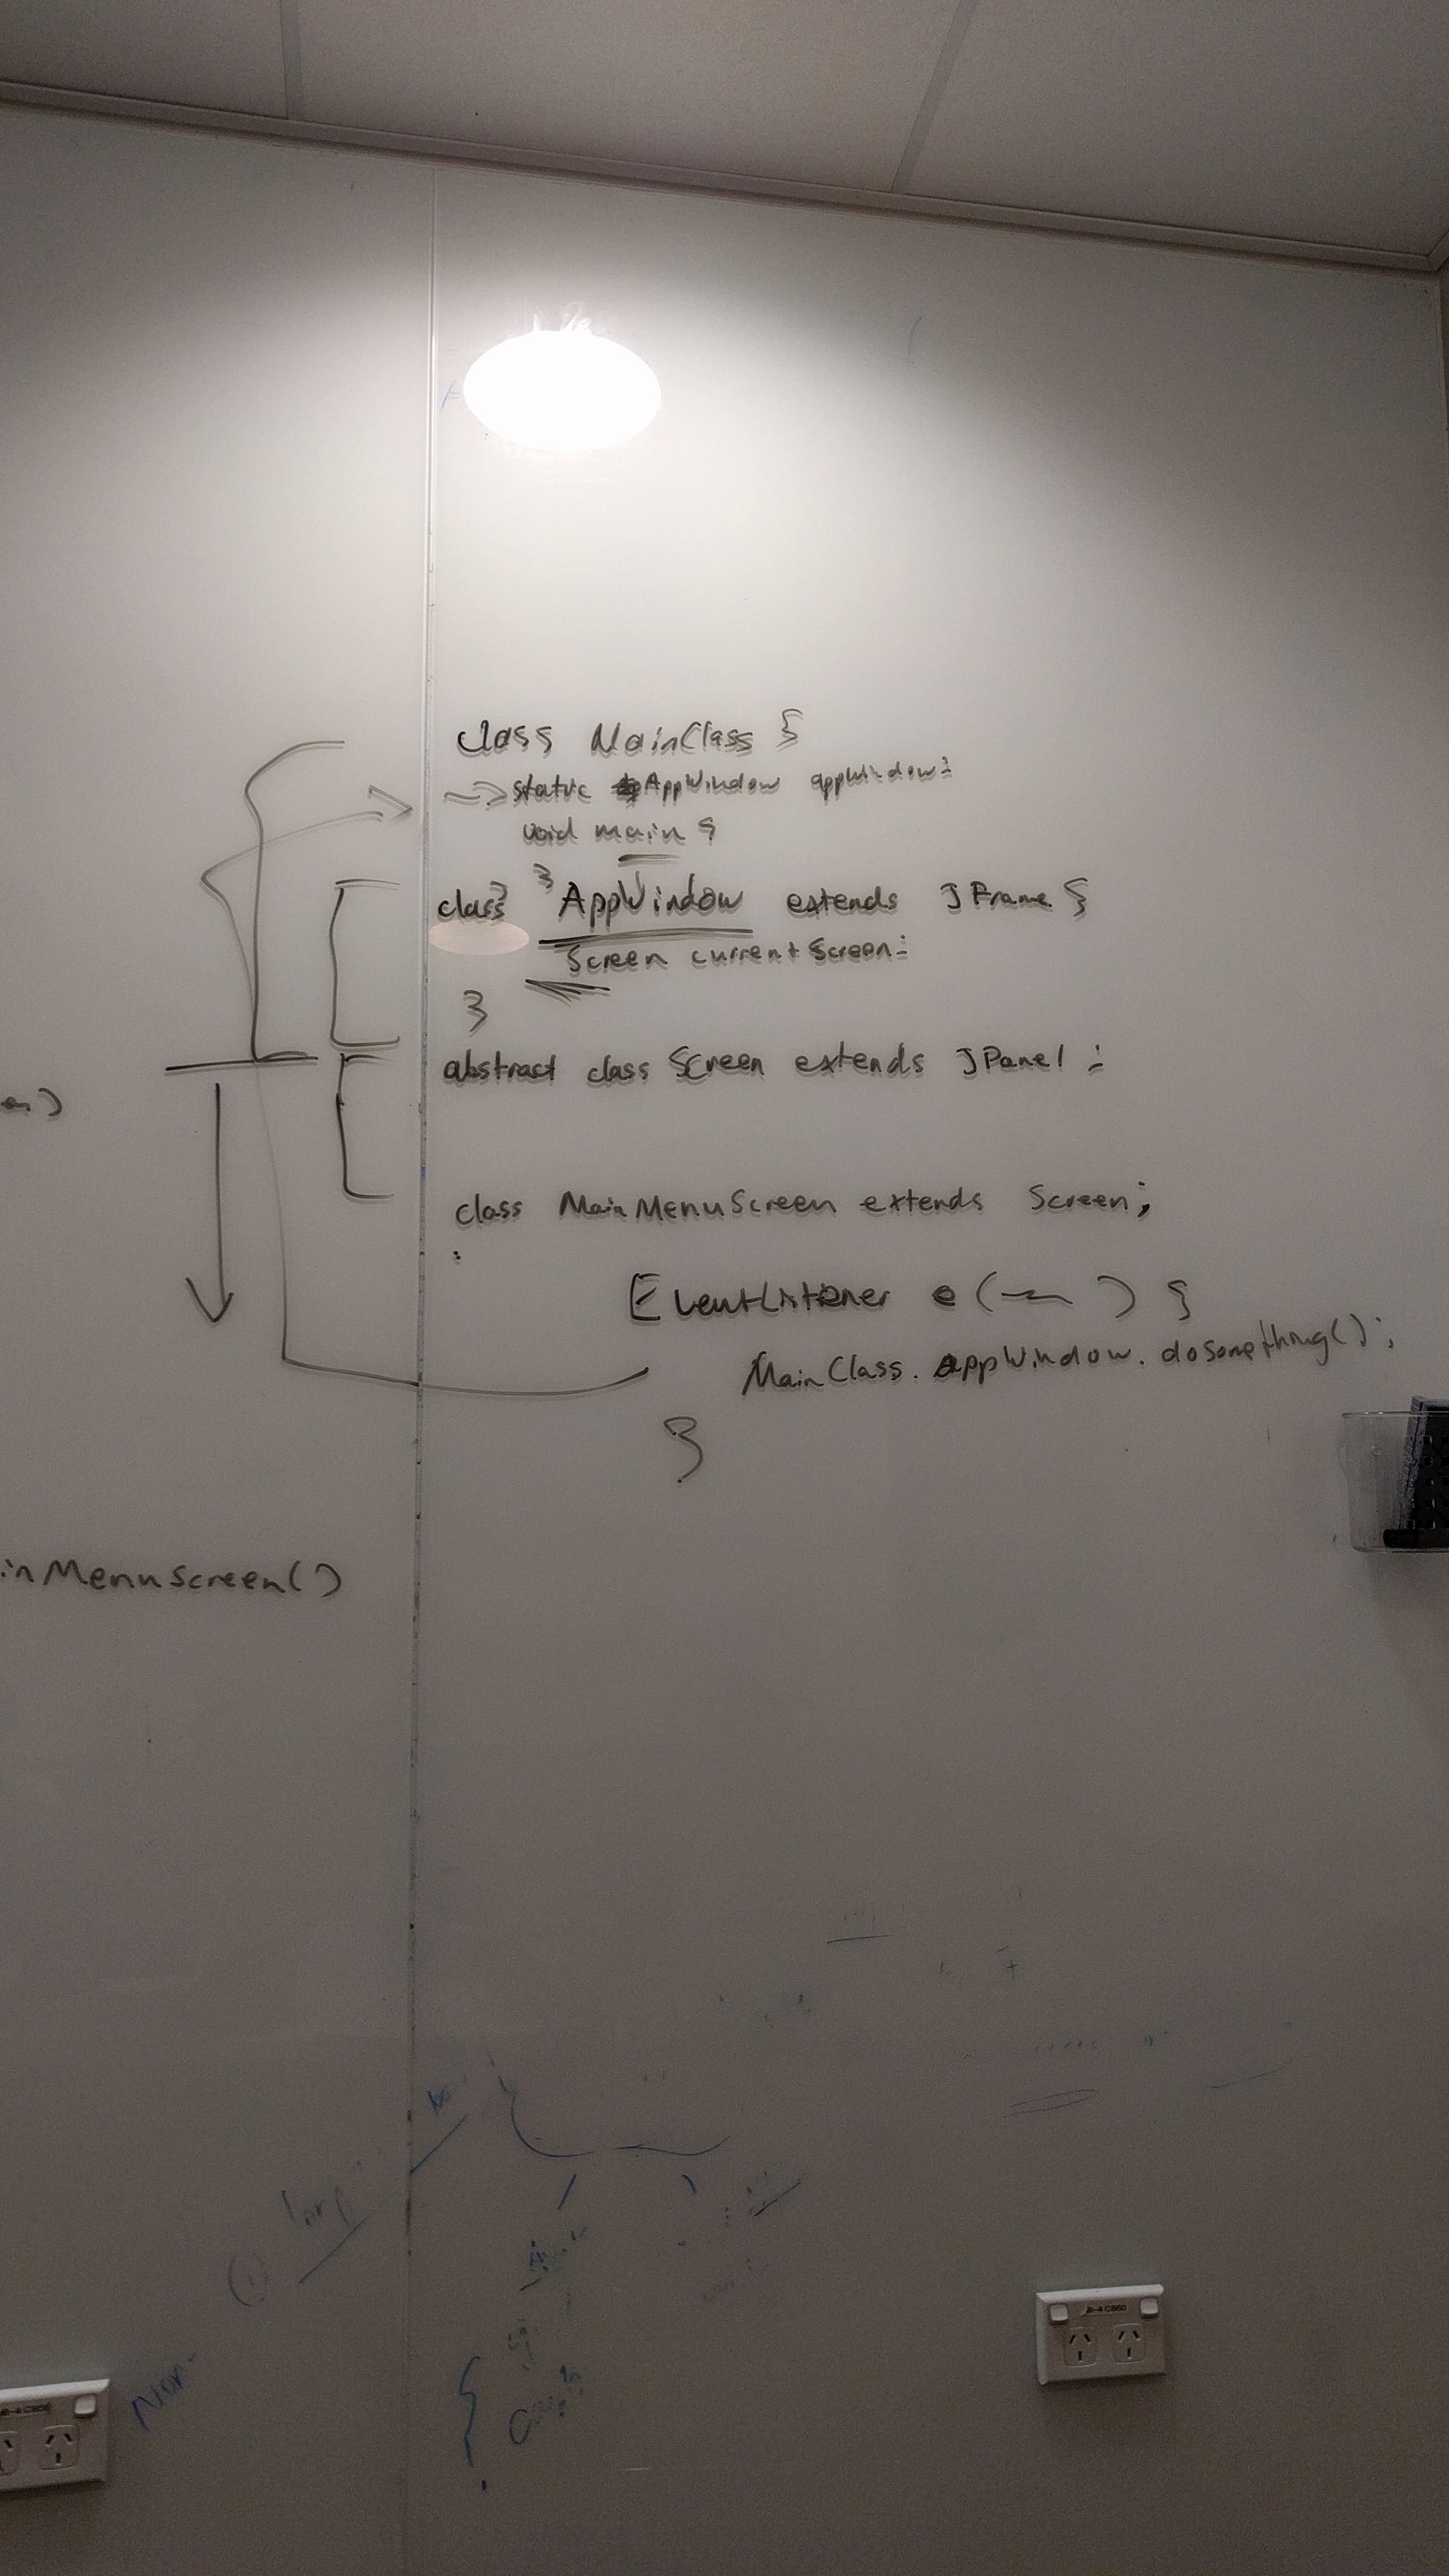 class MainClass {
static AppWindow appWindow;
void main {
}
class } AppWindow extends JFrame {
Screen currentScreen;
}
abstract class Screen extends JPanel ;
class MainMenuScreen extends Screen;
:
EventListener e ( ) {
MainClass. AppWindow. doSomething();
}
inMenuScreen()
Non-